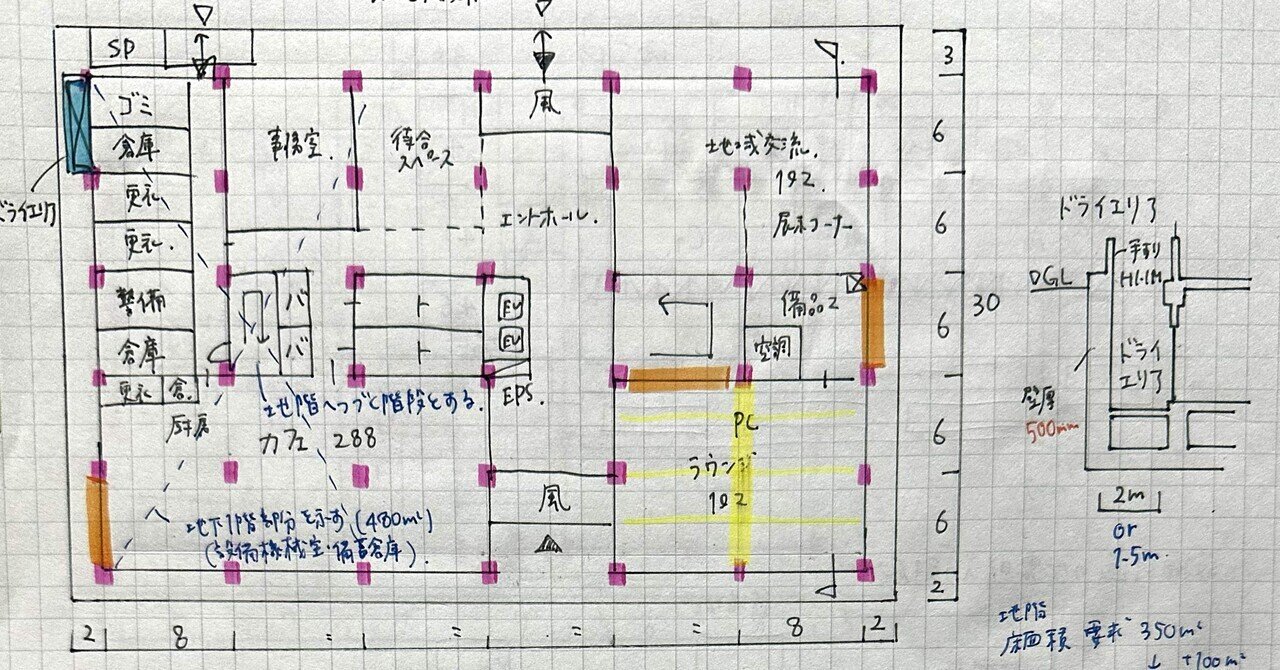 SP
ゴミ
倉庫
更衣
更衣.
警備
倉庫
更衣
倉.
厨房
ドライエリア
事務室.
待合
スペース
風
エントホール.
地域交流.
192.
展示コーナー
バ
バ
ト
ト
EV
EV
EPS.
備品2
空調
地階へつづく階段とする.
カフェ 288
地下1階部分を示す(480㎡)
(設備機械室・備蓄倉庫).
風
PC
ラウンジ
192
3
6
6
6
6
6
2
30
2
8
=
=
=
=
8
2
ドライエリア
手すり
H1.1M
DGL
ドライ
エリア
壁厚
500mm
2m
or
1.5m.
地階
床面積 要求 350㎡
↓ +100㎡